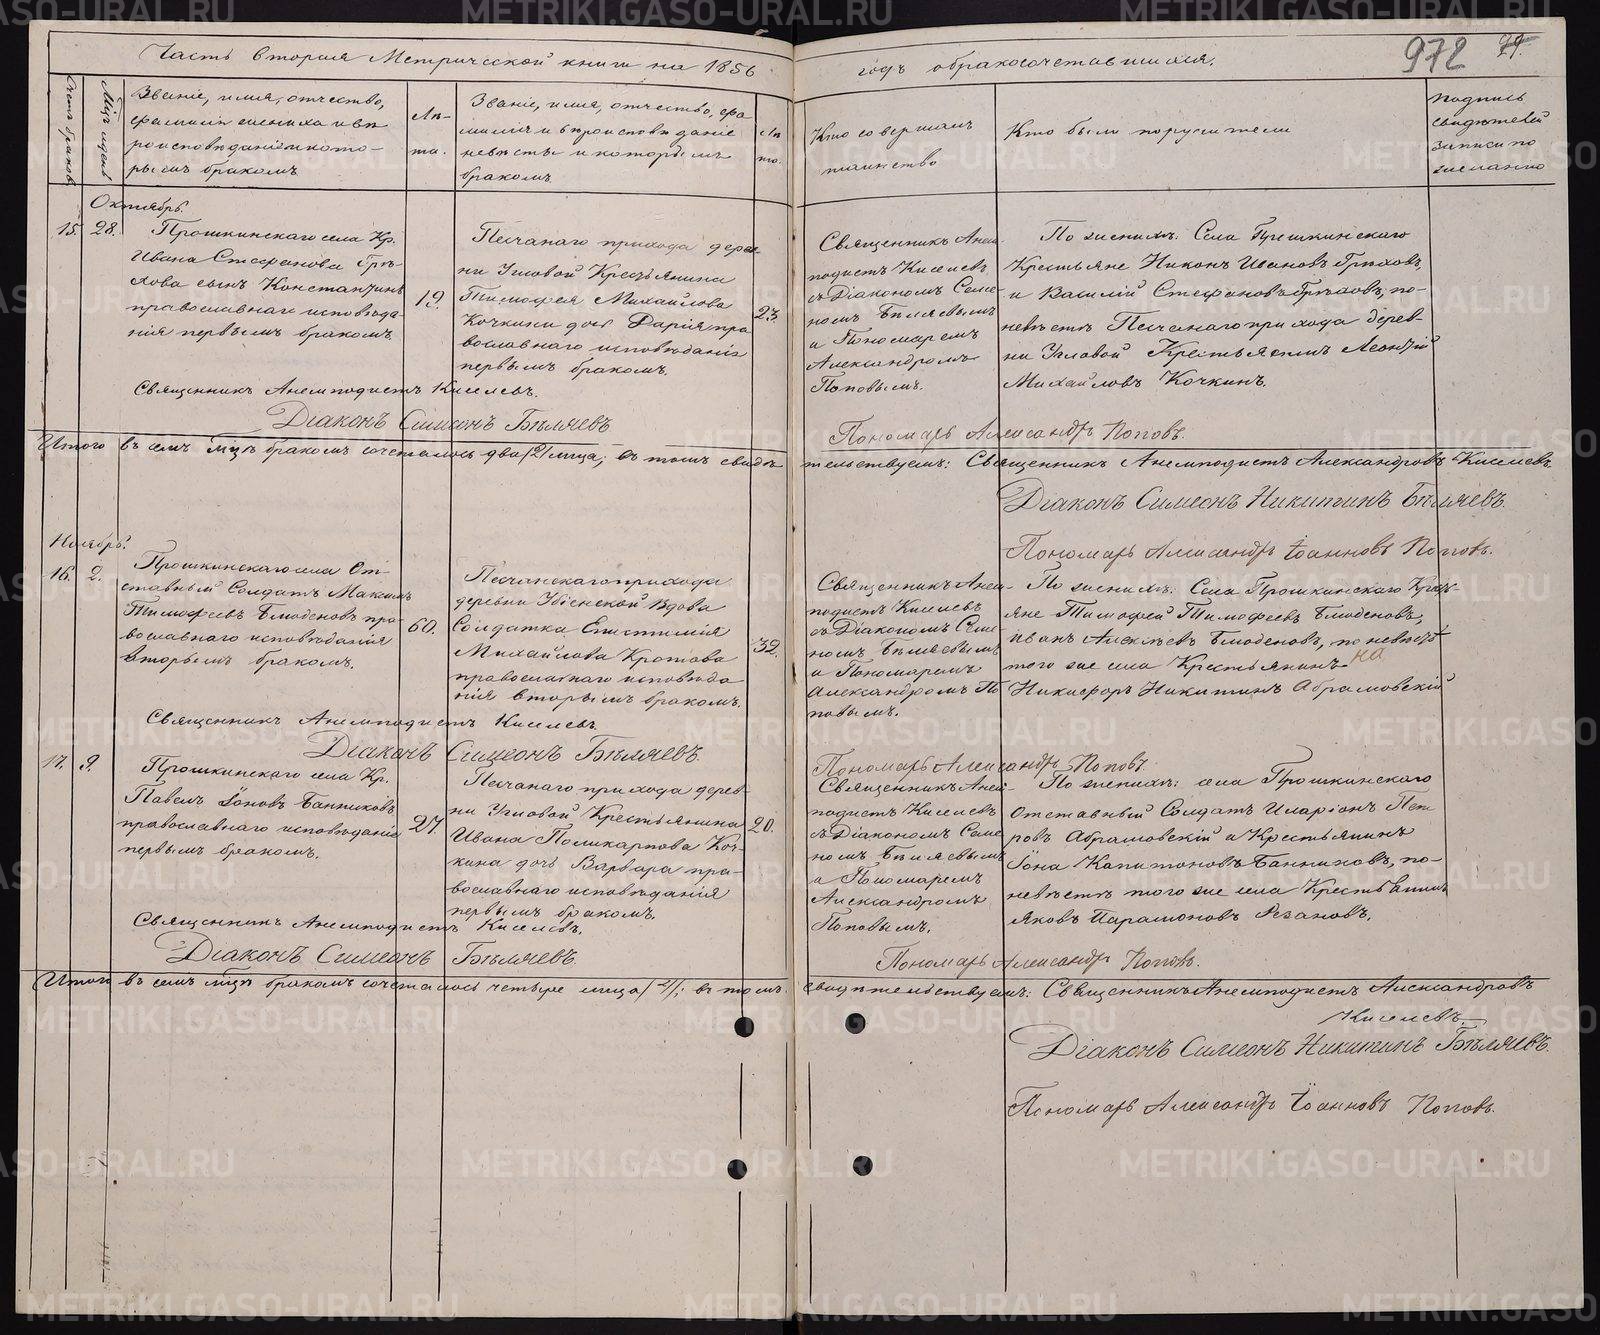 Часть вторая Метрической книги на 1856
годъ о бракосочетавшихся.
972
Счетъ браковъ
Мцъ и день
Званіе, имя, отчество,
фамилія жениха и вѣ
роисповѣданіе и кото-
рымъ бракомъ
Лѣ-
та.
Званіе, имя, отчество, фа
милія и вѣроисповѣданіе
невѣсты и которымъ
бракомъ
Лѣ
та.
Кто совершалъ
таинство
Кто были поручители
подпись
свидѣтелей
записи по
желанію
Октябрь.
15. 28.
Прошкинскаго села Кр.
Ивана Стефанова Грѣ-
хова сынъ Константинъ
православнаго исповѣда-
нія первымъ бракомъ
19.
Песчанаго прихода дерев-
ни Угловой Крестьянина
Тимофея Михайлова
Кочкина дочь Дарія пра
вославнаго исповѣданія
первымъ бракомъ.
23.
Священникъ Анем-
подистъ Киселевъ
съ Діакономъ Симе
ономъ Бѣляевымъ
и Пономаремъ
Александромъ
Поповымъ.
По женихѣ: Села Прошкинскаго
Крестьяне Никонъ Ивановъ Грѣховъ,
и Василій Стефановъ Грѣховъ, по-
невѣстѣ Песчанаго прихода дерев-
ни Угловой Крестьянинъ Леонтій
Михайловъ Кочкинъ.
Священникъ Анемподистъ Киселевъ.
Діаконъ Симеонъ Бѣляевъ
Пономарь Александръ Поповъ.
Итого въ семъ мцѣ бракомъ сочеталось два /2/ лица; въ томъ свидѣ
тельствуемъ: Священникъ Анемподистъ Александровъ Киселевъ
Діаконъ Симеонъ Никитинъ Бѣляевъ.
Пономарь Александръ Іоанновъ Поповъ.
Ноябрь.
16. 2.
Прошкинскаго села От-
ставный Солдатъ Максимъ
Тимофеевъ Блюденовъ пра-
вославнаго исповѣданія
вторымъ бракомъ.
60.
Песчанскаго прихода
деревни Убіенской Вдова
Солдатка Епистимія
Михайлова Кротова
православнаго исповѣда
нія вторымъ бракомъ.
32.
Священникъ Анем-
подистъ Киселевъ
съ Діакономъ Симе
ономъ Бѣляевымъ
и Пономаремъ
Александромъ По
повымъ.
По женихѣ: Села Прошкинскаго Кресть-
яне Тимофей Тимофеевъ Блюденовъ,
Иванъ Алексѣевъ Блюденовъ, по невѣстѣ
того же села Крестьянинъ
на
Никифоръ Никитинъ Абрамовскій
Священникъ Анемподистъ Киселевъ
Діаконъ Симеонъ Бѣляевъ.
Пономарь Александръ Поповъ.
17. 9.
Прошкинскаго села Кр.
Павелъ Іоновъ Банниковъ
православнаго исповѣданія
первымъ бракомъ.
27.
Песчанаго прихода дерев-
ни Угловой Крестьянина
Ивана Поликарпова Коч-
кина дочь Варвара пра-
вославнаго исповѣданія
первымъ бракомъ.
20.
Священникъ Анем-
подистъ Киселевъ
съ Діакономъ Симе
ономъ Бѣляевымъ
и Пономаремъ
Александромъ
Поповымъ.
По женихѣ: села Прошкинскаго
Отставный Солдатъ Иларіонъ Пет
ровъ Абрамовскій и Крестьянинъ
Іона Капитоновъ Банниковъ, по-
невѣстѣ того же села Крестьянинъ
Яковъ Парамоновъ Рязановъ.
Священникъ Анемподистъ Киселевъ.
Діаконъ Симеонъ Бѣляевъ.
Пономарь Александръ Поповъ.
Итого въ семъ мцѣ бракомъ сочеталось четыре лица /4/; въ томъ
свидѣтельствуемъ: Священникъ Анемподистъ Александровъ
Киселевъ
Діаконъ Симеонъ Никитинъ Бѣляевъ.
Пономарь Александръ Іоанновъ Поповъ.
METRIKI.GASO-URAL.RU